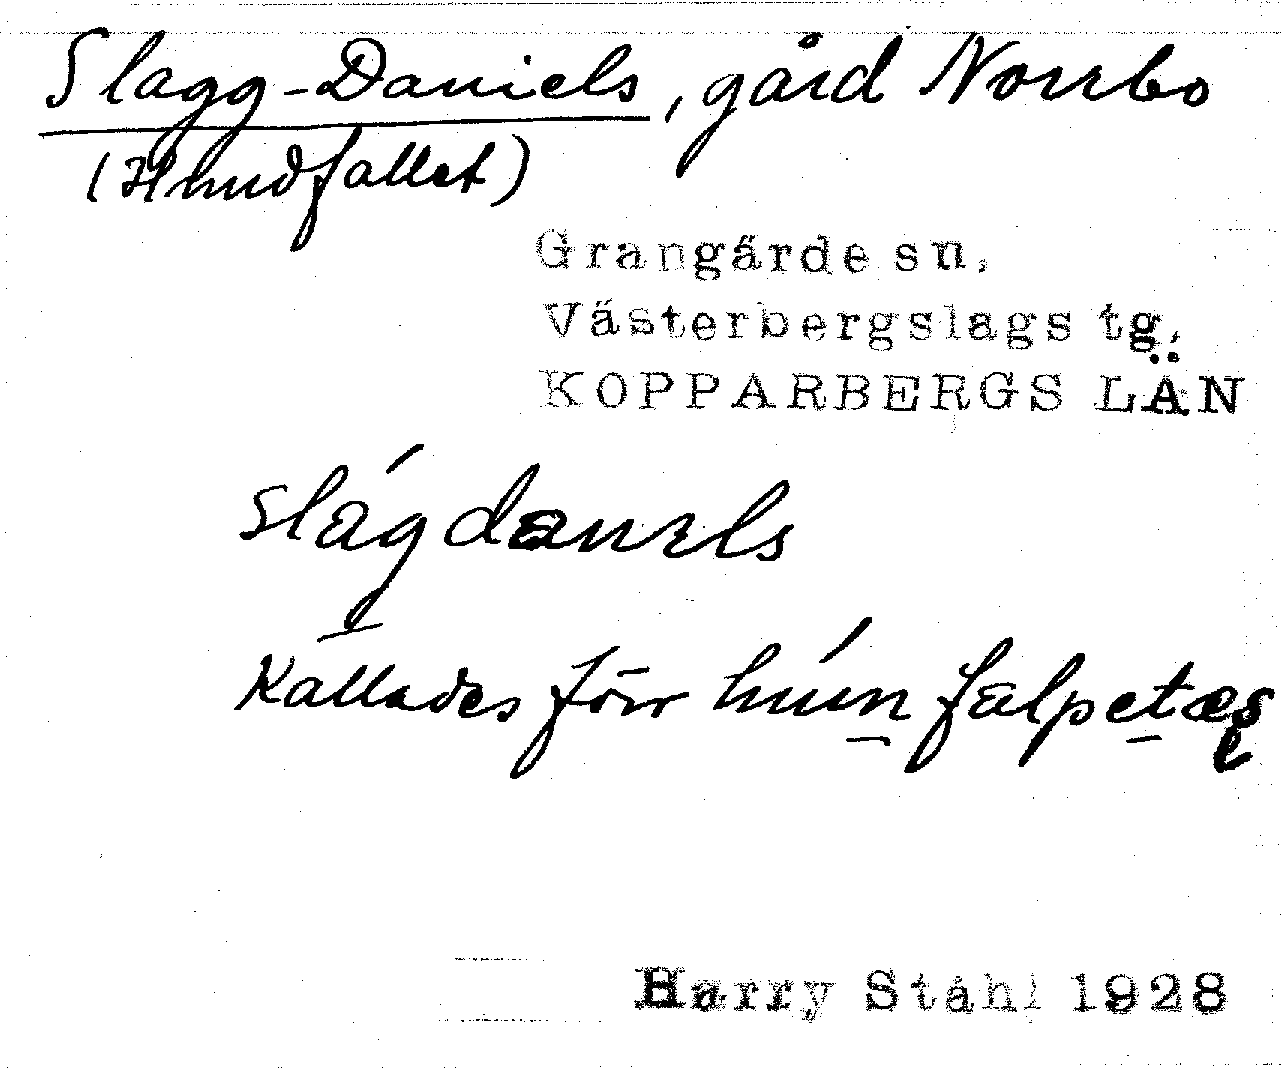 Slagg-Daniels, gård Norrbo
(Hundfallet)
Grangärde sn,
Västerbergslags tg,
KOPPARBERGS LÄN
slág danels
Kallades förr hún falpetæs
Harry Ståhl 1928